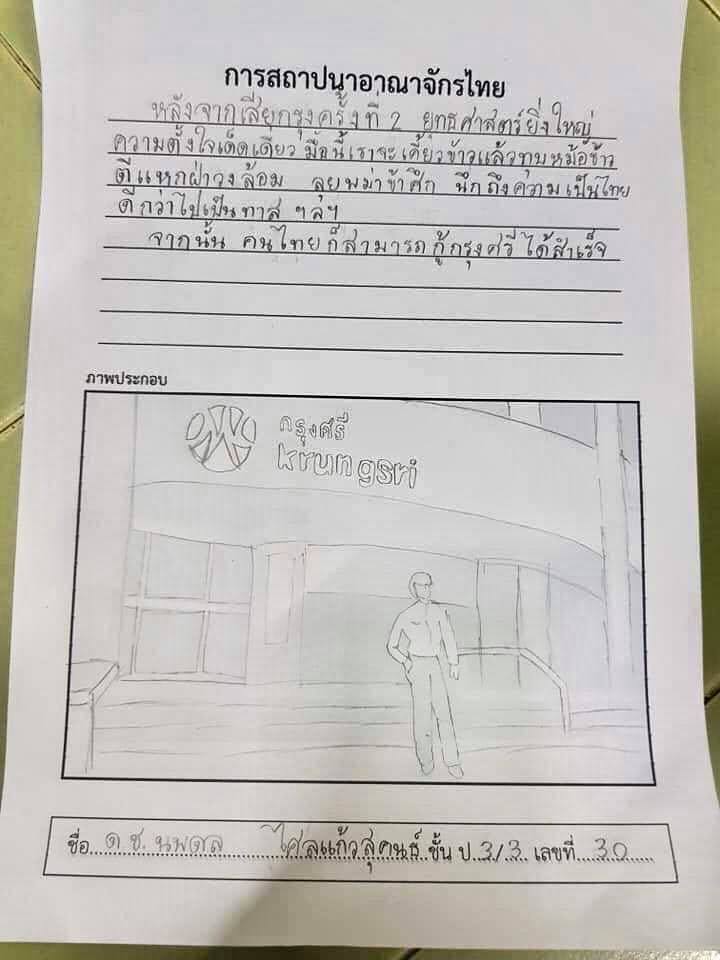 การสถาปนาอาณาจักรไทย
หลังจากเสียกรุงครั้งที่ 2 ยุทธศาสตร์ยิ่งใหญ่
ความตั้งใจเด็ดเดี่ยว มื้อนี้เราจะเคี้ยวข้าวแล้วทุบหม้อข้าว
ตีแหกฝ่าวงล้อม ลุยพม่าข้าศึก นึกถึงความเป็นไทย
ดีกว่าไปเป็นทาส ฯลฯ
จากนั้น คนไทยก็สามารถกู้กรุงศรีได้สำเร็จ
ภาพประกอบ
กรุงศรี
krungsri
ชื่อ ด.ช. นพดล ไศลแก้วสุคนธ์ ชั้น ป. 3/3 เลขที่ 30